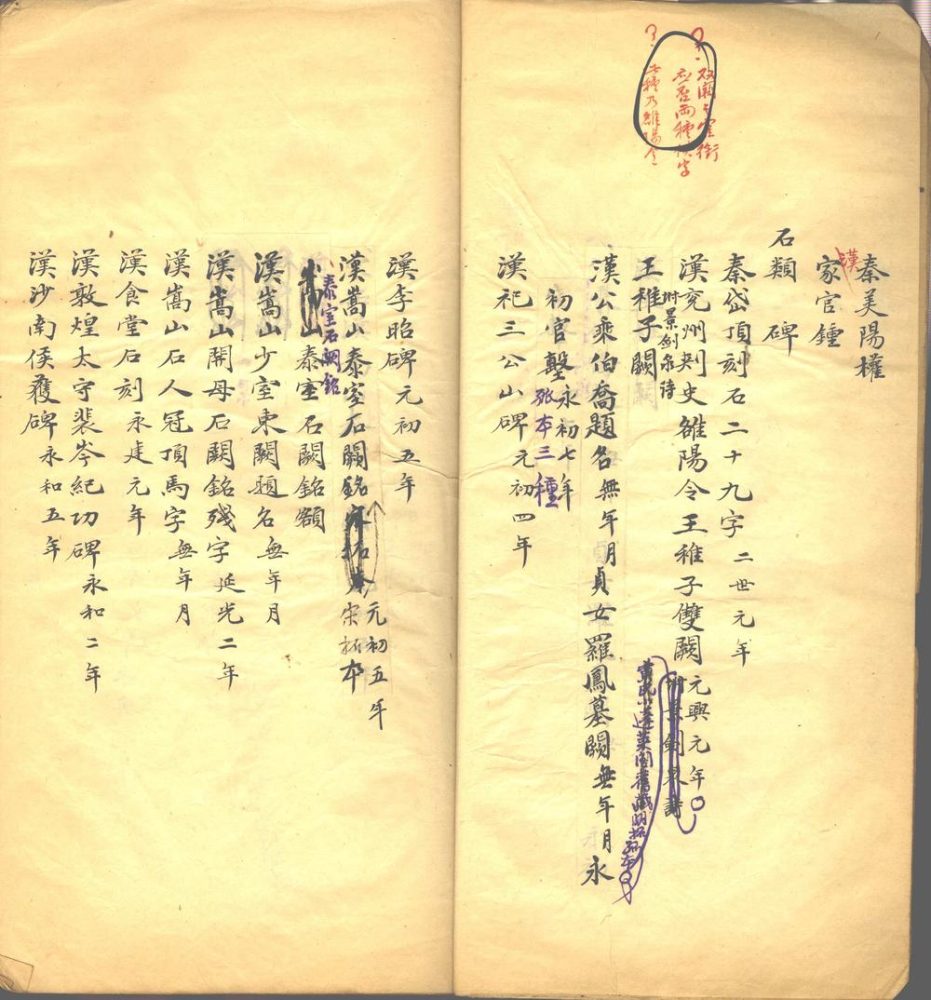 双闕上官銜
应否两種
秦美陽權
漢
家官鍾
石類 碑
秦岱頂刻石二十九字 二世元年
漢兖州刺史雒陽令王稚子雙闕 元興元年
附景劍泉詩
王稚子闕
黃氏小蓬萊閣舊藏明拓孤本
漢公乘伯喬題名 無年月 貞女羅鳳墓闕 無年月 永
初官墼 永初七年
張本三種
漢祀三公山碑 元初四年
漢李昭碑 元初五年
漢嵩山泰室石闕銘 宋拓本 元初五年
泰室石闕銘
山泰室石闕銘額
漢嵩山少室東闕題名 無年月
漢嵩山開母石闕銘殘字 延光二年
漢嵩山石人冠頂馬字 無年月
漢食堂石刻 永建元年
漢敦煌太守裴岑紀功碑 永和二年
漢沙南侯獲碑 永和五年